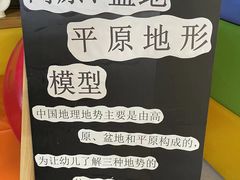 高原、盆地
平原地形
模型
中国地理地势主要是由高
原、盆地和平原构成的、
为让幼儿了解三种地势的